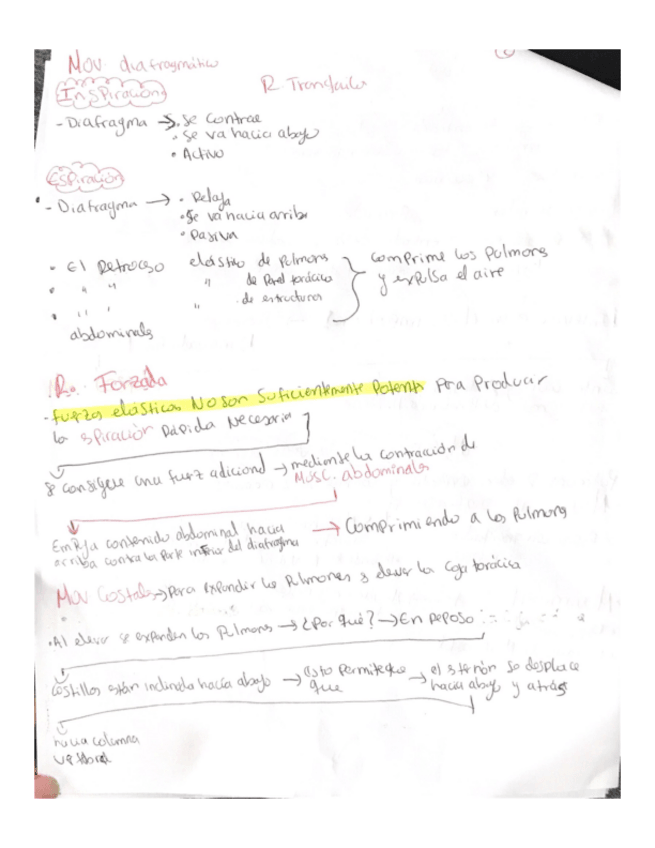 Mov. diafragmático
Inspiración R. Tranquila
- Diafragma → • Se contrae
• Se va hacia abajo
• Activo
Espiración
- Diafragma → • Relaja
• Se va hacia arriba
• Pasiva
• El Retroceso elástico de Pulmons } comprime los Pulmons
• " " " de Pared torácica y expulsa el aire
• " " " de estructuras
abdominals
R. Forzada
- fuerza elásticas No son Suficientemente Potents Para Producir
la spiración Rápida Necesaria
Se consigue una fuerz adicional → mediante la contracción de
Musc. abdominals
Empuja contenido abdominal hacia → Comprimiendo a los Pulmons
arriba contra la Parte inferior del diafragma
Mov Costals → Para expandir los Pulmones y elevar la Caja torácica
• Al elevar se expanden los Pulmons → ¿Por qué? → En Reposo
Costillas están inclinada hacía abajo → Esto permite que → el sternón se desplace
que hacia abajo y atrás
hacia columna
vertebral